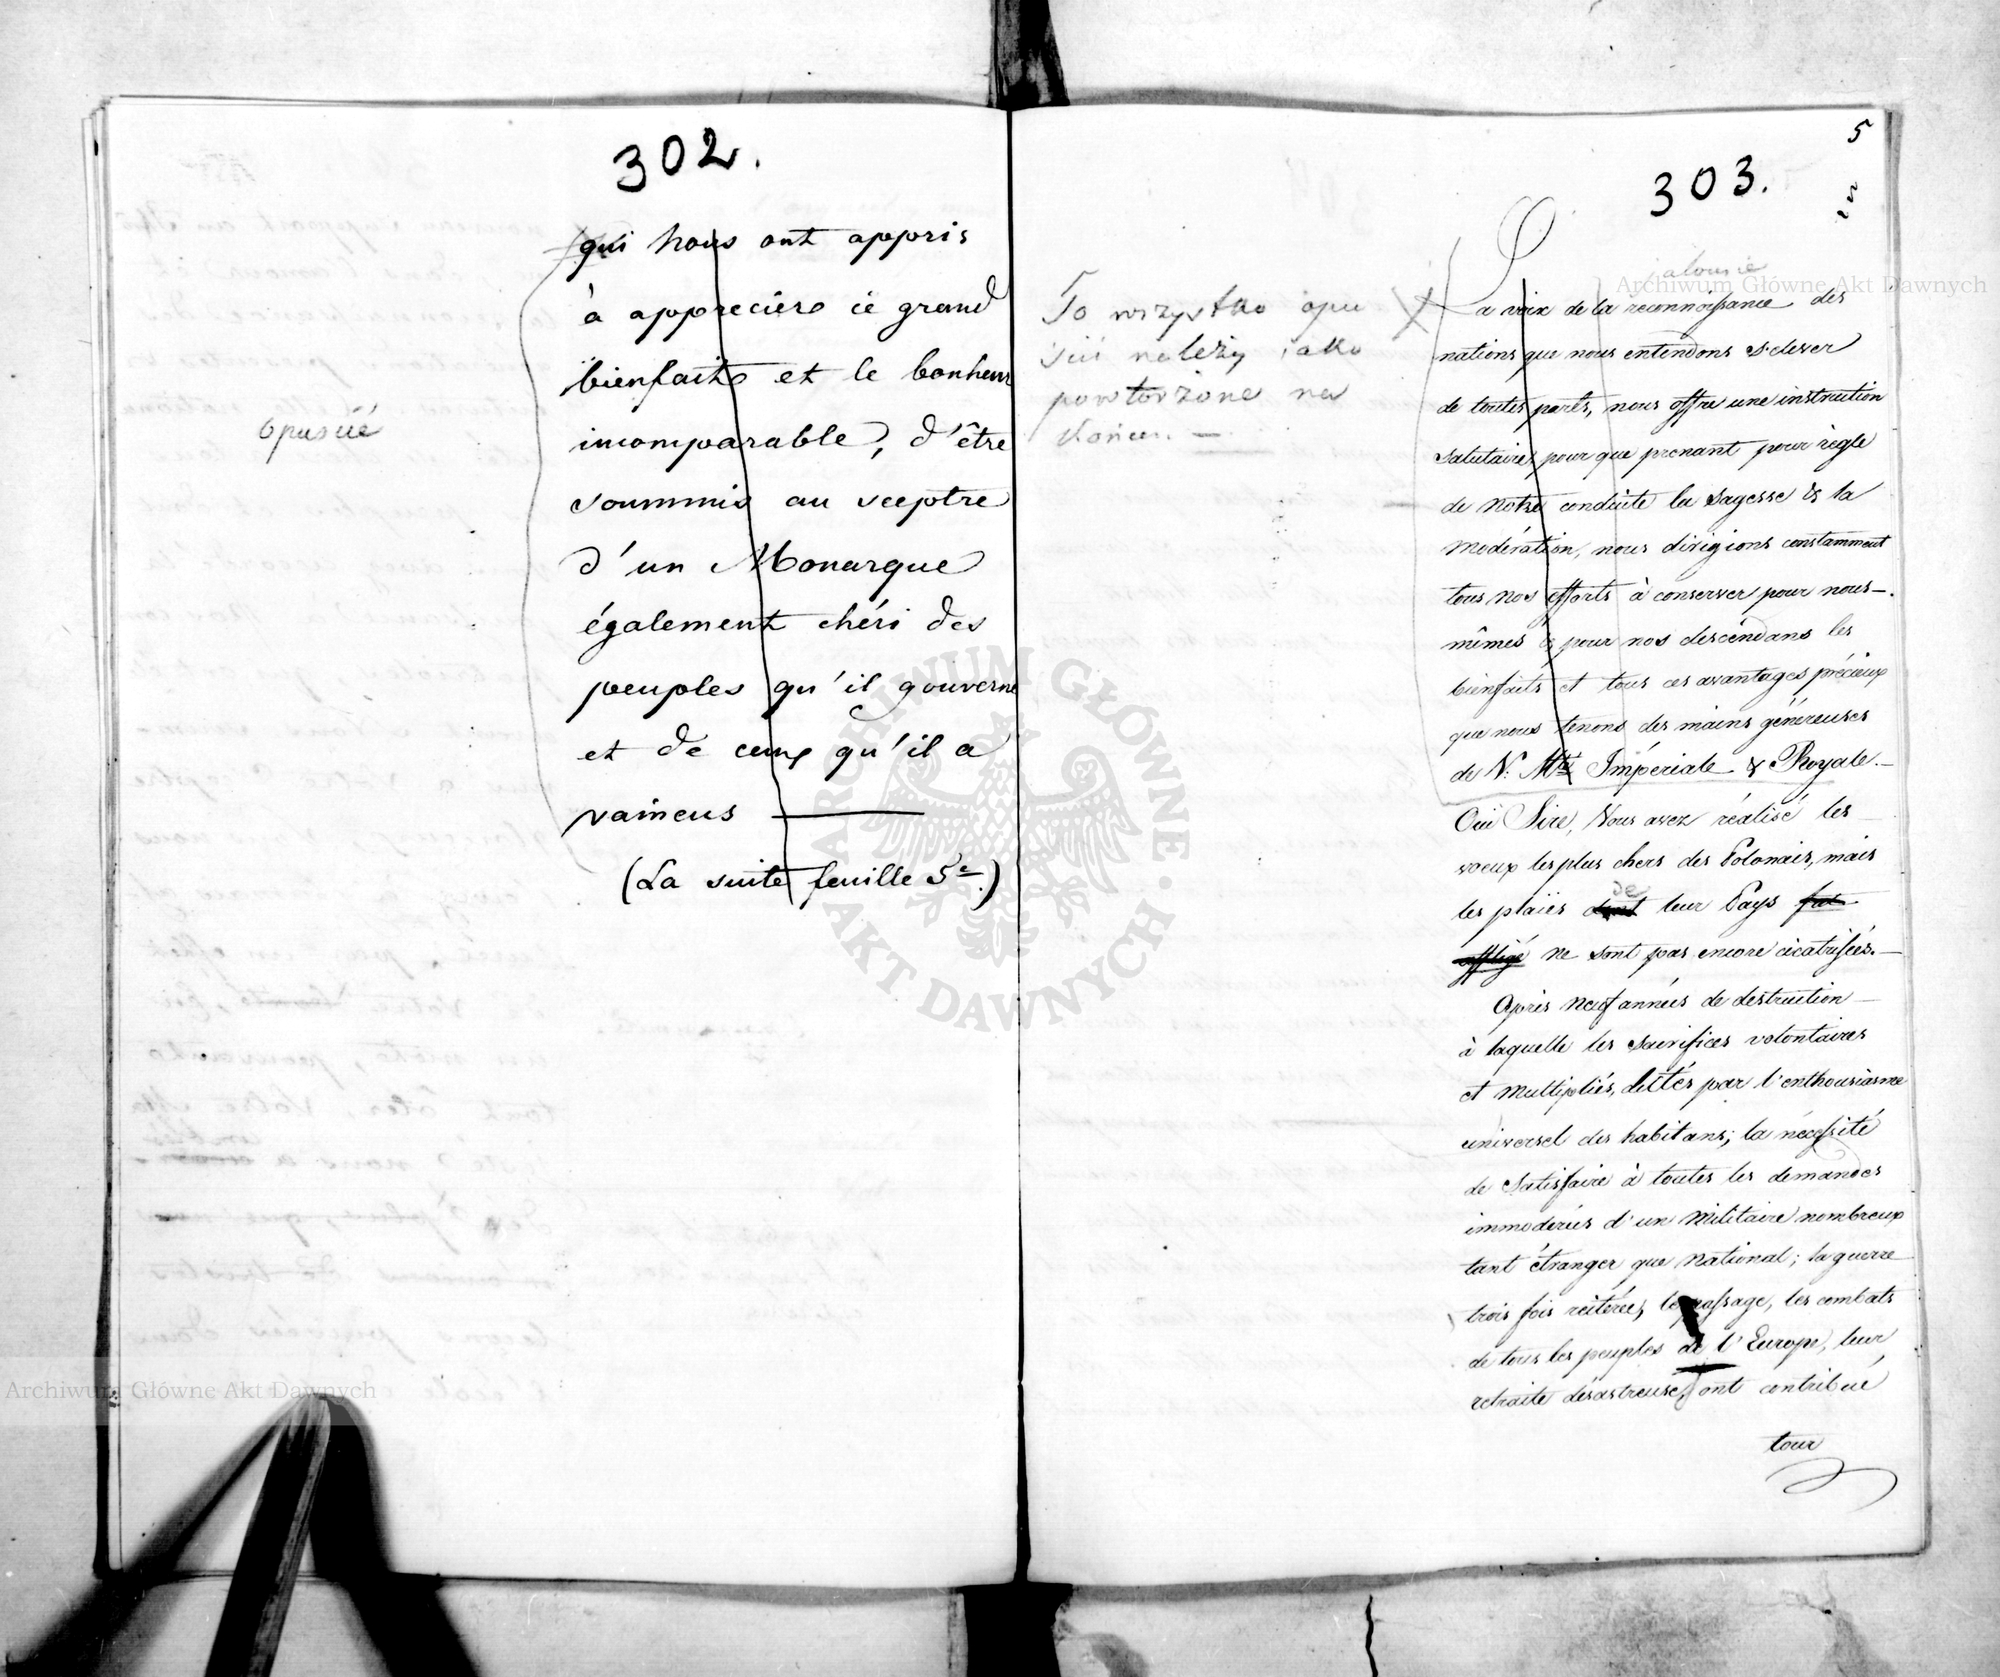 302.
qui nous ont appris
à apprecièrs cè grand
bienfaits et le bonheur
incomparable, d'être
soummis au sceptre
d'un Monarque
également chéri des
peuples qu'il gouverne
et de ceux qu'il a
vaincus
(La suite feuille 5e.)
Opuścić
5
303.
To wszystko opu
ścić należy jako
powtórzone na
końcu. —
jalousie
La voix de la reconnoissance des
nations que nous entendons s'elever
de toutes parts, nous offre une instruction
salutaire, pour que prenant pour règle
de notre conduite la sagesse & la
modération, nous dirigions constamment
tous nos efforts à conserver pour nous-
mêmes & pour nos descéndans les
bienfaits et tous ces avantages précieux
que nous tenons des mains généreuses
de V: Mté Impériale & Royale.—
Oui Sire, Vous avez réalisé les
voeux les plus chers des Polonais, mais
de
les plaies dont leur Pays fut
affligé ne sont pas encore cicatrisées.—
Après neuf années de destruction
à laquelle les sacrifices volontaires
et multipliés, dictés par l'enthousiasme
universel des habitans; la nécessité
de satisfaire à toutes les demandes
immodérées d'un Militaire nombreux
tant étranger que National; la guerre
trois fois reitérée, le passage, les combats
de tous les peuples de l'Europe, leur
retraite désastreuse, ont contribué
tour
Archiwum Główne Akt Dawnych
Archiwum Główne Akt Dawnych
ARCHIWUM GŁÓWNE AKT DAWNYCH